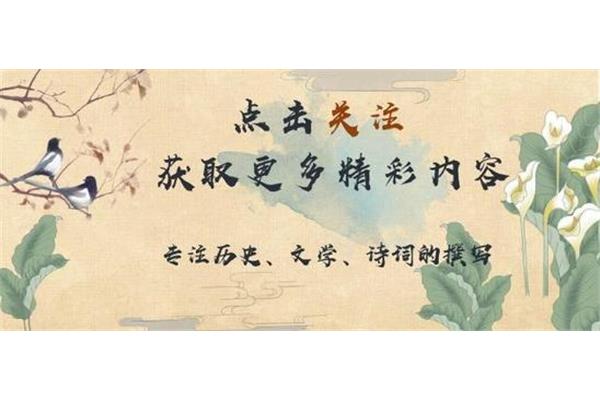 点击关注
获取更多精彩内容
专注历史、文学、诗词的撰写